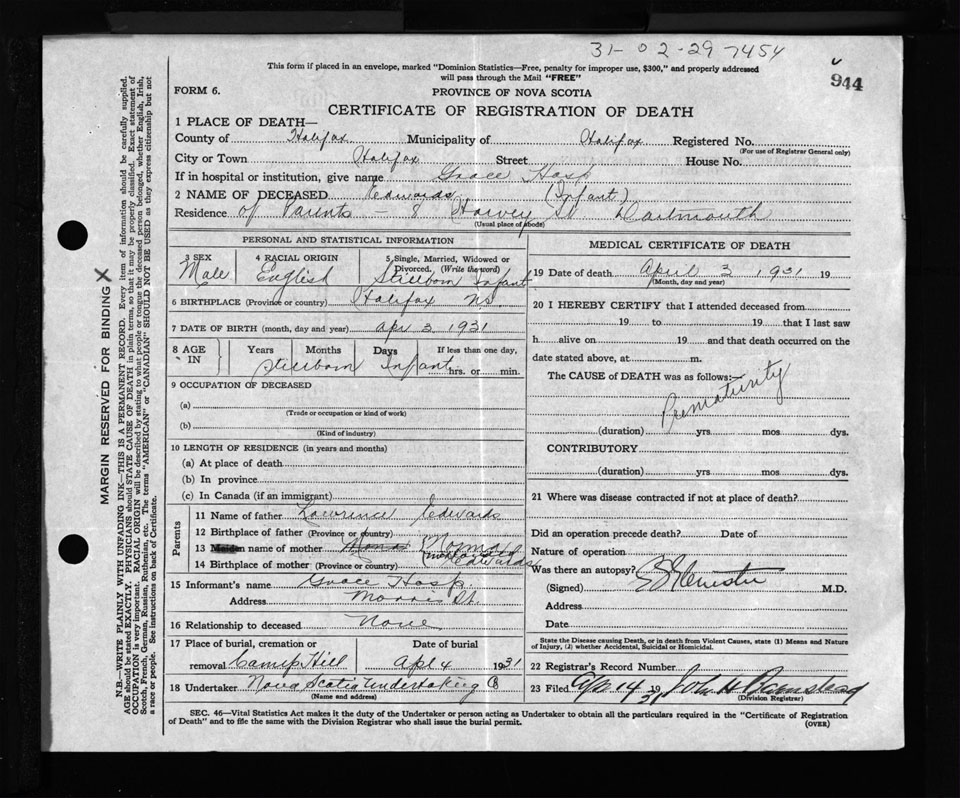 31-02-29-7454
This form if placed in an envelope, marked "Dominion Statistics—Free, penalty for improper use, $300," and properly addressed
will pass through the Mail "FREE"
944
FORM 6.
PROVINCE OF NOVA SCOTIA
CERTIFICATE OF REGISTRATION OF DEATH
1 PLACE OF DEATH—
County of Halifax Municipality of Halifax Registered No.
(For use of Registrar General only)
City or Town Halifax Street House No.
If in hospital or institution, give name Grace Hosp
2 NAME OF DECEASED Edwards (Infant)
Residence of Parents - 8 Harvey St Dartmouth
(Usual place of abode)
PERSONAL AND STATISTICAL INFORMATION
3 SEX 4 RACIAL ORIGIN 5 Single, Married, Widowed or
Divorced. (Write the word)
Male English Stillborn Infant
6 BIRTHPLACE (Province or country) Halifax NS.
7 DATE OF BIRTH (month, day and year) Apr 3 1931
8 AGE IN Years Months Days If less than one day,
Stillborn Infant hrs. or min.
9 OCCUPATION OF DECEASED
(a)
(Trade or occupation or kind of work)
(b)
(Kind of industry)
10 LENGTH OF RESIDENCE (in years and months)
(a) At place of death
(b) In province
(c) In Canada (if an immigrant)
Parents
11 Name of father Lawrence Edwards
12 Birthplace of father (Province or country)
13 Maiden name of mother Norma
14 Birthplace of mother (Province or country) Edwards
15 Informant's name Grace Hosp
Address Morris St.
16 Relationship to deceased None
17 Place of burial, cremation or Date of burial
removal Camp Hill Apl 4 1931
18 Undertaker Nova Scotia Undertaking
(Name and address)
MEDICAL CERTIFICATE OF DEATH
19 Date of death April 3 1931 19
(Month, day and year)
20 I HEREBY CERTIFY that I attended deceased from
19 to 19 that I last saw
h alive on 19 and that death occurred on the
date stated above, at m.
The CAUSE of DEATH was as follows:—
Prematurity
(duration) yrs mos dys.
CONTRIBUTORY
(duration) yrs mos dys.
21 Where was disease contracted if not at place of death?
Did an operation precede death? Date of
Nature of operation
Was there an autopsy?
(Signed) M.D.
Address
Date
State the Disease causing Death, or in death from Violent Causes, state (1) Means and Nature
of Injury, (2) whether Accidental, Suicidal or Homicidal.
22 Registrar's Record Number
23 Filed Apr 14 1931 John
(Division Registrar)
SEC. 46—Vital Statistics Act makes it the duty of the Undertaker or person acting as Undertaker to obtain all the particulars required in the "Certificate of Registration
of Death" and to file the same with the Division Registrar who shall issue the burial permit.
(OVER)
MARGIN RESERVED FOR BINDING X
N.B.—WRITE PLAINLY WITH UNFADING INK—THIS IS A PERMANENT RECORD. Every item of information should be carefully supplied.
AGE should be stated EXACTLY. PHYSICIANS should STATE CAUSE OF DEATH in plain terms, so that it may be properly classified. Exact statement of
OCCUPATION is very important. RACIAL ORIGIN will be described by stating to what people or tongue the deceased person belonged, whether English, Irish,
Scotch, French, German, Russian, Ruthenian, etc. The terms "AMERICAN" or "CANADIAN" SHOULD NOT BE USED as they express citizenship but not
a race or people. See instructions on back of Certificate.